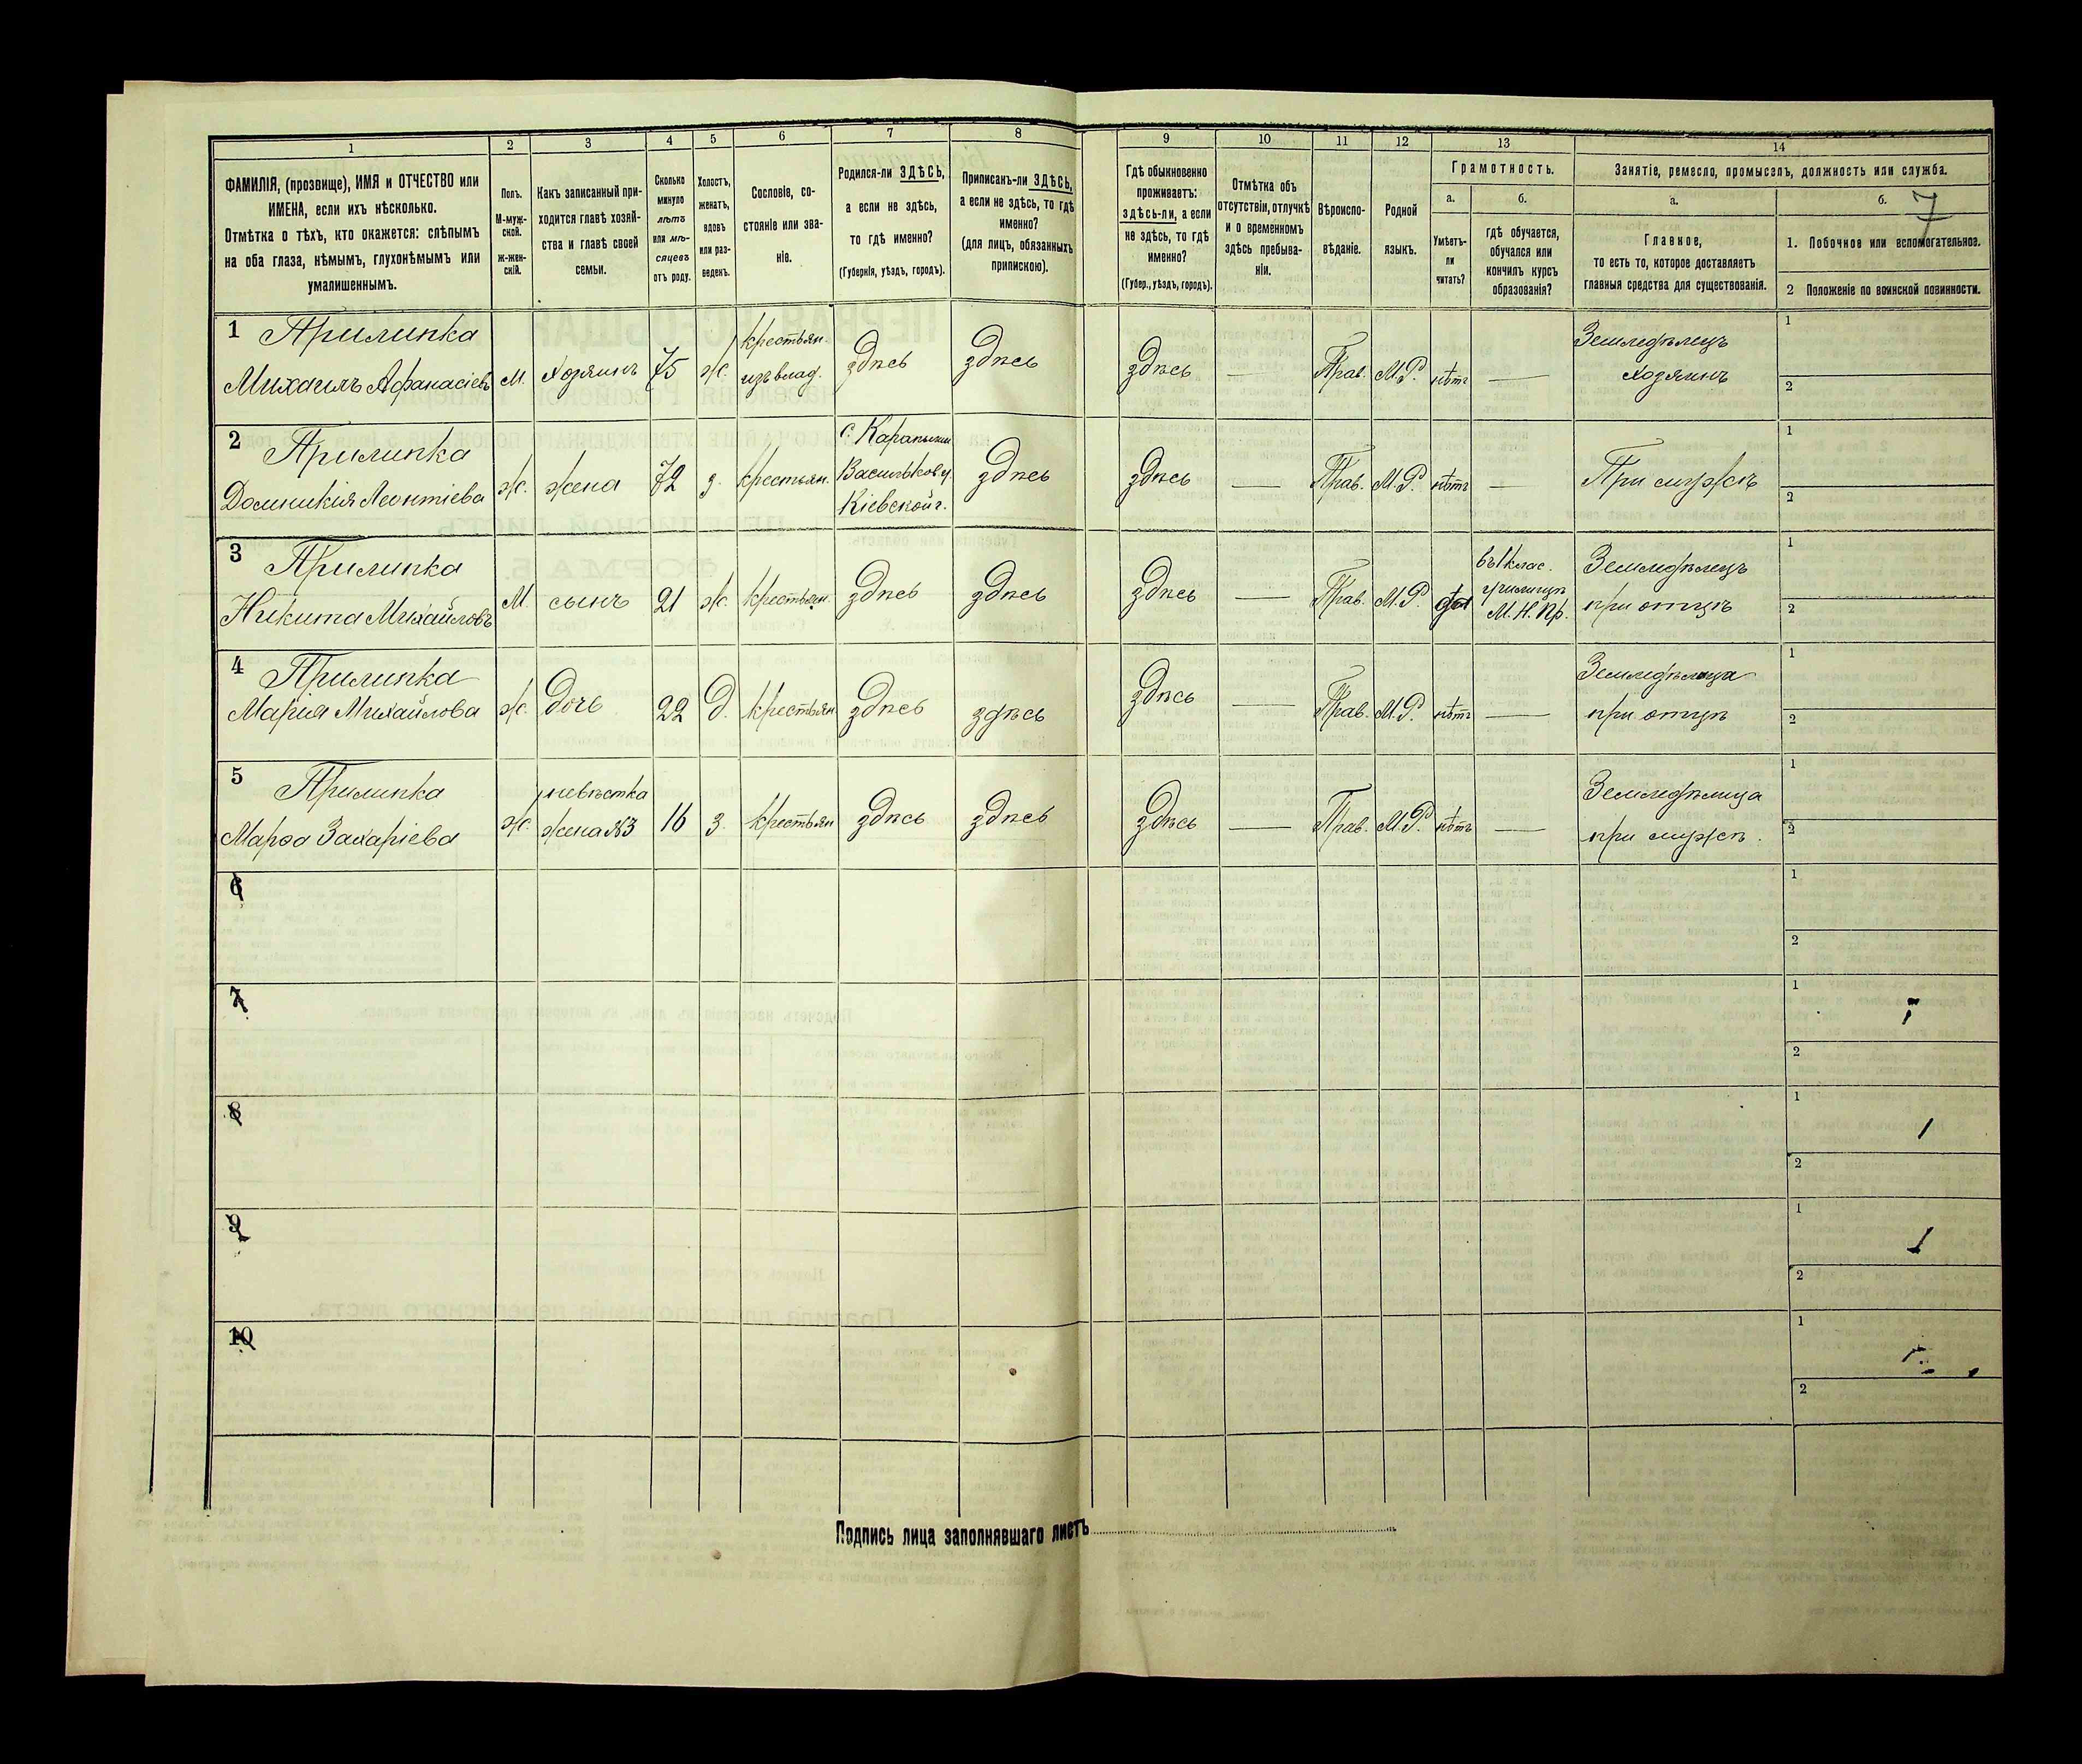 1
2
3
4
5
6
7
8
9
10
11
12
13
14
ФАМИЛІЯ, (прозвище), ИМЯ и ОТЧЕСТВО или
ИМЕНА, если ихъ нѣсколько.
Отмѣтка о тѣхъ, кто окажется: слѣпымъ
на оба глаза, нѣмымъ, глухонѣмымъ или
умалишеннымъ.
Полъ.
М-муж-
ской.
ж-жен-
скій.
Какъ записанный при-
ходится главѣ хозяй-
ства и главѣ своей
семьи.
Сколько
минуло
лѣтъ
или мѣ-
сяцевъ
отъ роду.
Холостъ,
женатъ,
вдовъ
или раз-
веденъ.
Сословіе, со-
стояніе или зва-
ніе.
Родился-ли ЗДѢСЬ,
а если не здѣсь,
то гдѣ именно?
(Губернія, уѣздъ, городъ).
Приписанъ-ли ЗДѢСЬ,
а если не здѣсь, то гдѣ
именно?
(для лицъ, обязанныхъ
припискою).
Гдѣ обыкновенно
проживаетъ:
здѣсь-ли, а если
не здѣсь, то гдѣ
именно?
(Губер., уѣздъ, городъ).
Отмѣтка объ
отсутствіи, отлучкѣ
и о временномъ
здѣсь пребыва-
ніи.
Вѣроиспо-
вѣданіе.
Родной
языкъ.
Грамотность.
а.
Умѣетъ-
ли
читать?
б.
гдѣ обучается,
обучался или
кончилъ курсъ
образованія?
Занятіе, ремесло, промыселъ, должность или служба.
а.
Главное,
то есть то, которое доставляетъ
главныя средства для существованія.
б. 7
1. Побочное или вспомогательное.
2 Положеніе по воинской повинности.
1 Прилипка
Михаилъ Афанасіевъ
М.
хозяинъ
75
ж.
крестьян.
изъ влад.
здѣсь
здѣсь
здѣсь
—
Прав.
М.Р.
нѣтъ
—
Земледѣлецъ
хозяинъ
1
2
2 Прилипка
Домникія Леонтіева
ж.
жена
72
з.
крестьян.
с.
Васильков. у.
Кіевской г.
здѣсь
здѣсь
—
Прав.
М.Р.
нѣтъ
—
При мужѣ
1
2
3 Прилипка
Никита Михайловъ
М.
сынъ
21
ж.
крестьян.
здѣсь
здѣсь
здѣсь
—
Прав.
М.Р.
да
въ 1 клас.
училищѣ
М. Н. Пр.
Земледѣлецъ
при отцѣ
1
2
4 Прилипка
Марія Михайлова
ж.
дочь
22
д.
крестьян.
здѣсь
здѣсь
здѣсь
—
Прав.
М.Р.
нѣтъ
—
Земледѣлица
при отцѣ
1
2
5 Прилипка
Марѳа Захаріева
ж.
невѣстка
жена №3
16
з.
крестьян
здѣсь
здѣсь
здѣсь
—
Прав.
М.Р.
нѣтъ
—
Земледѣлица
при мужѣ.
1
2
6
1
2
7
1
2
8
1
2
9
1
2
10
1
2
Подпись лица заполнявшаго листъ